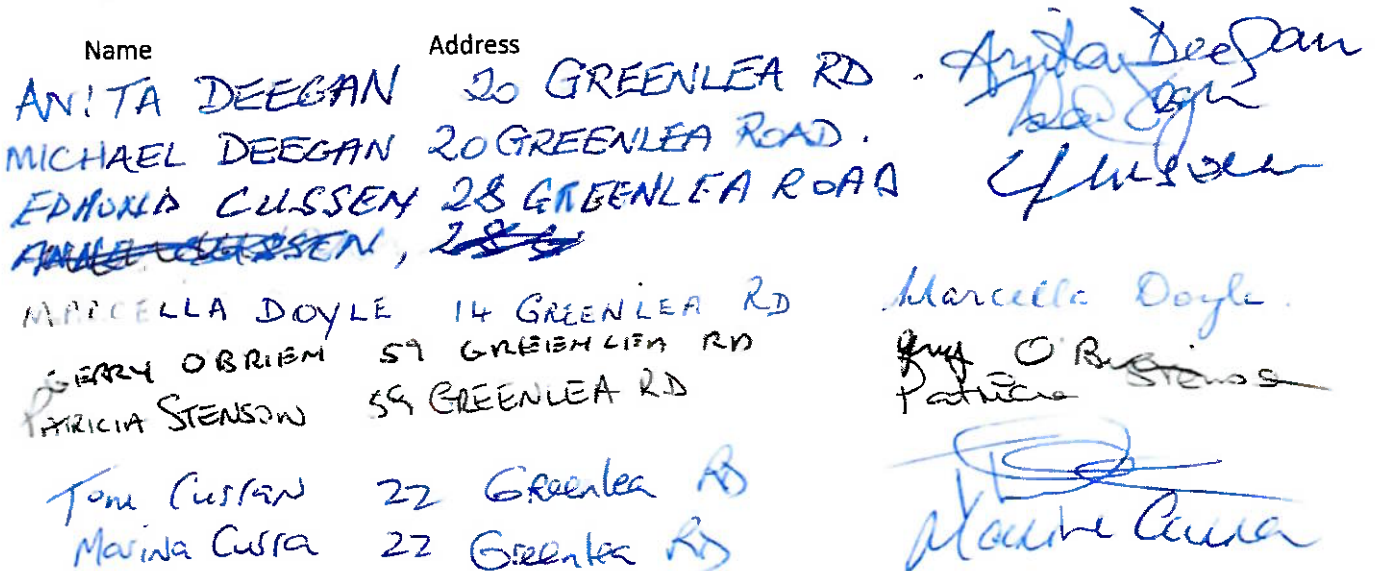 Name Address
ANITA DEEGAN 20 GREENLEA RD. Anita Deegan
MICHAEL DEEGAN 20 GREENLEA ROAD.
EDMUND CUSSEN 28 GREENLEA ROAD
MARCELLA DOYLE 14 GREENLEA RD Marcella Doyle.
GERRY O BRIEN 59 GREENLEA RD Gerry O'Brien
PATRICIA STENSON 59 GREENLEA RD Patricia Stenson
Tom 22 Greenlea RD
Marina 22 Greenlea RD